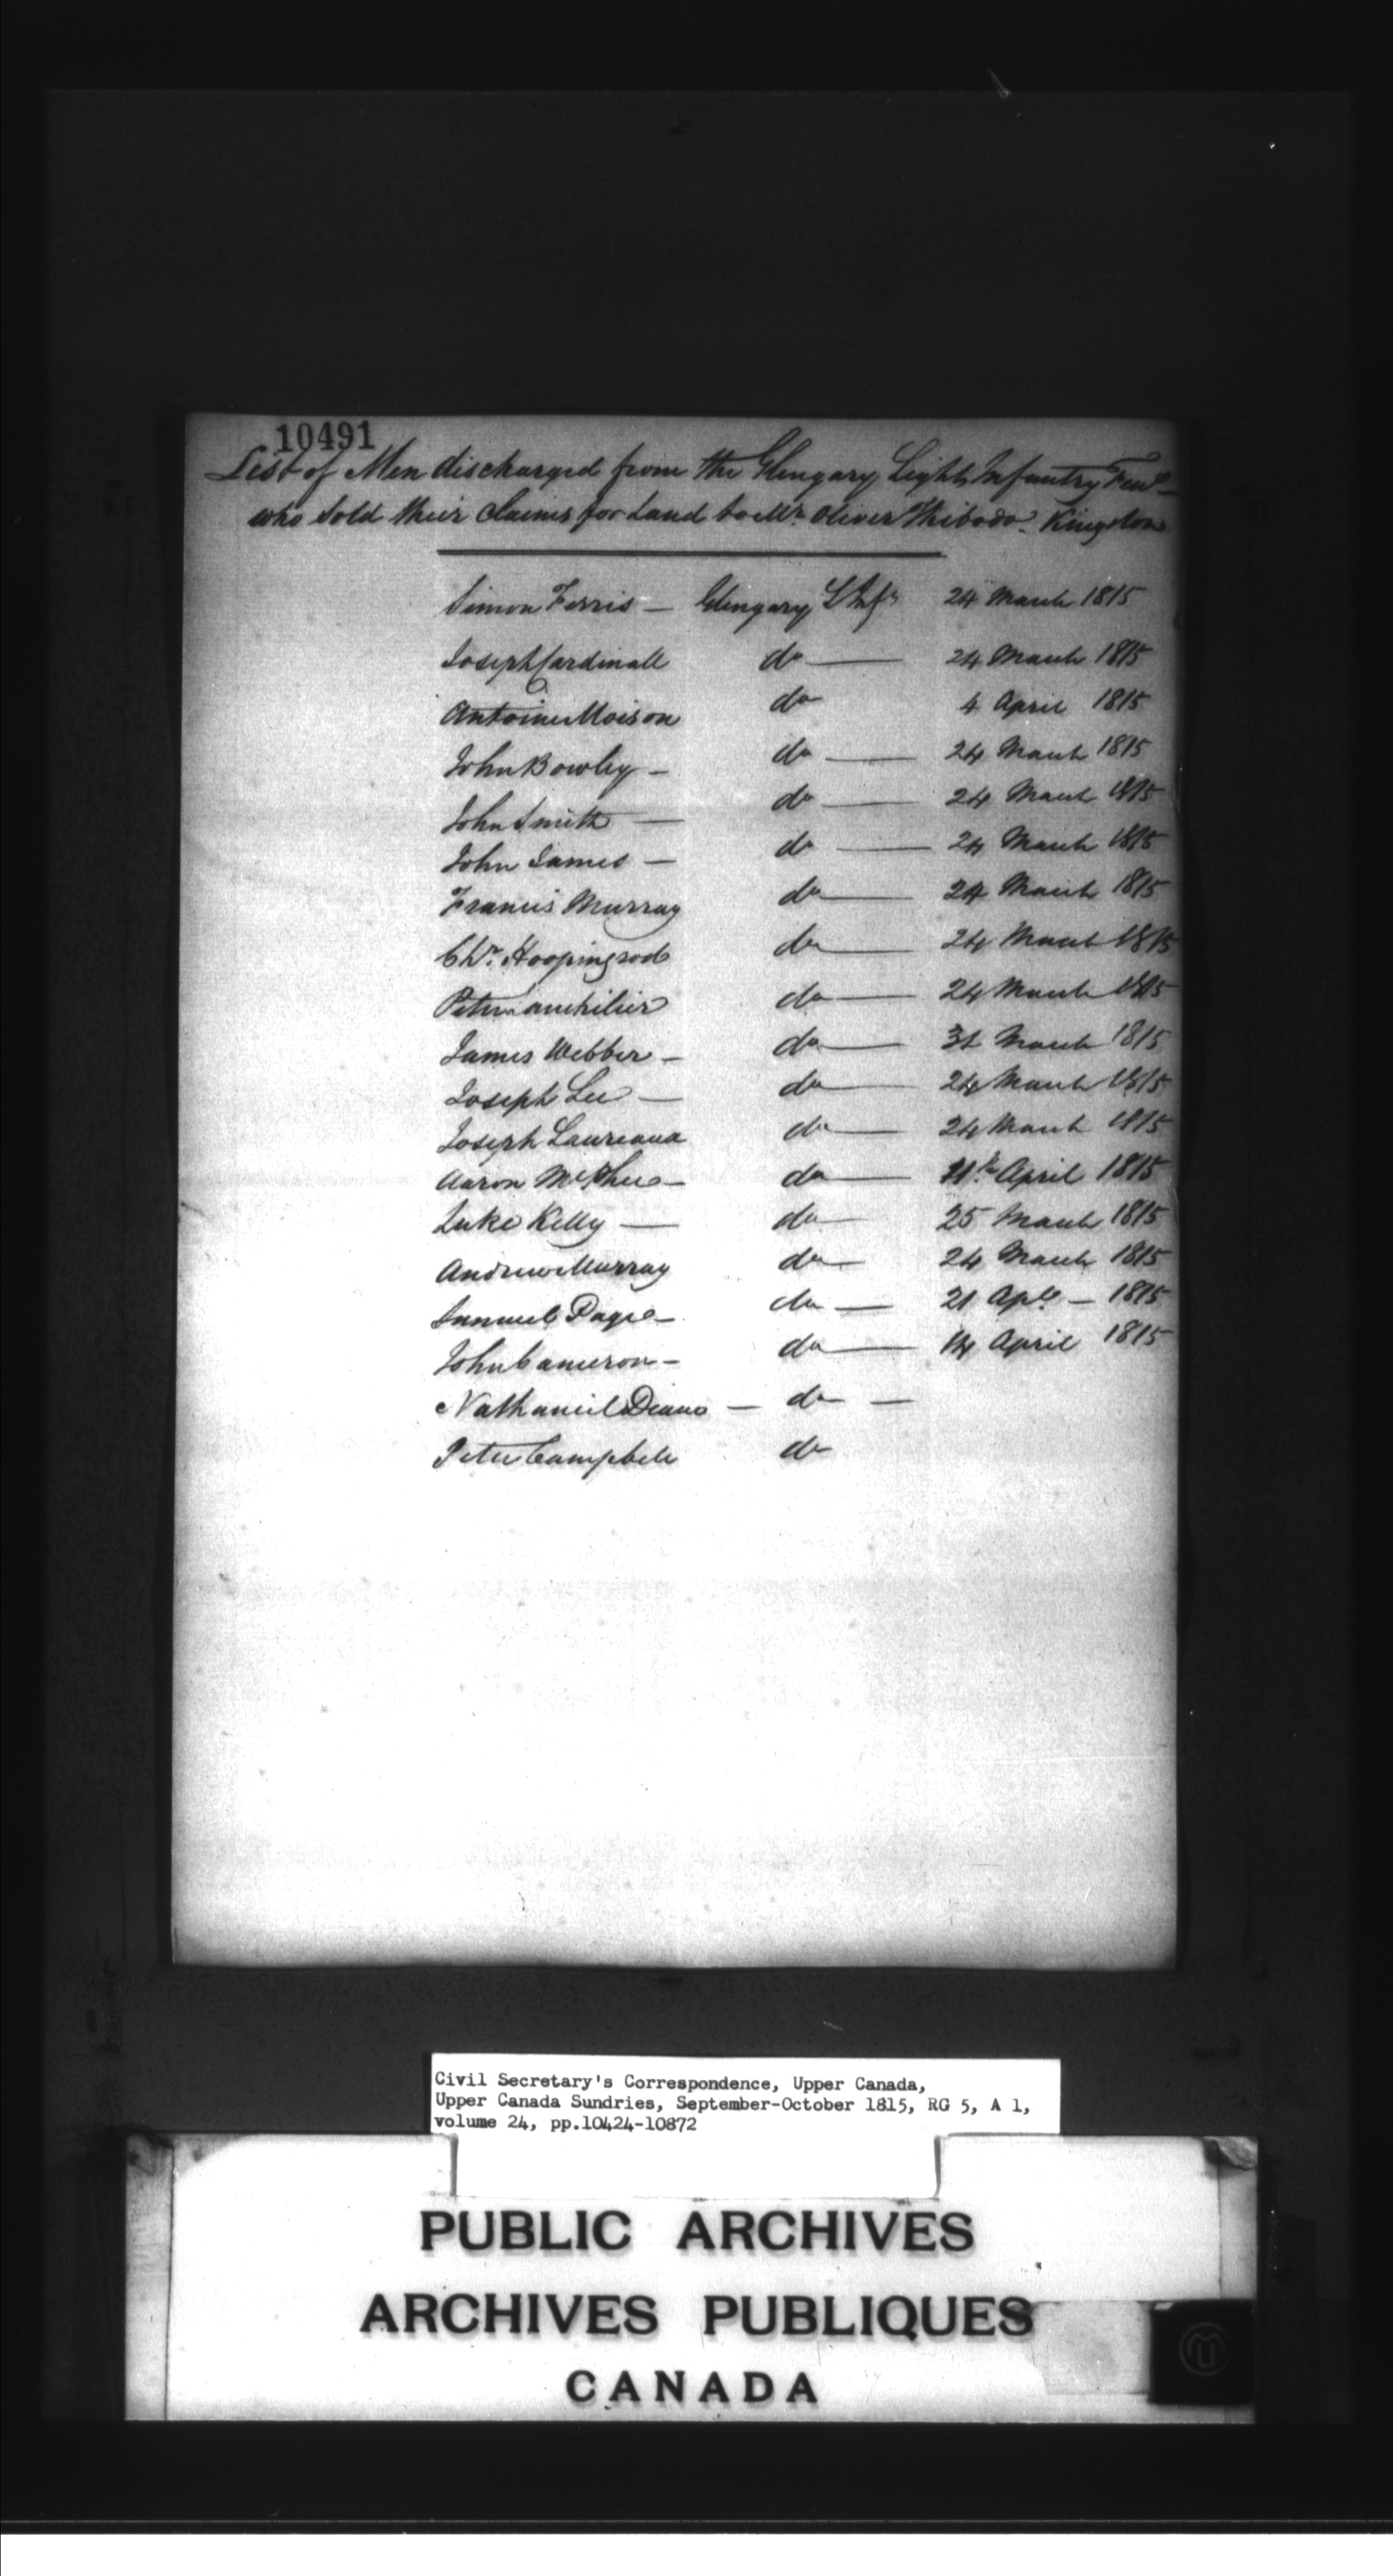 10491
List of Men discharged from the Glengary Light Infantry Fenc
who Sold their Claims for Land to Mr. Oliver Thibodo. Kingston
Simon Ferris — Glengary L Infy 24 March 1815
Joseph Cardinall do — 24 March 1815
Antoine Moison do 4 April 1815
John Bowley — do — 24 March 1815
John Smith — do — 24 March 1815
John James — do — 24 March 1815
Francis Murray do — 24 March 1815
Chr. Hoopingrod do — 24 March 1815
Peter do — 24 March 1815
James Webber — do — 31 March 1815
Joseph Lee — do — 24 March 1815
Joseph Laureaua do — 24 March 1815
Aaron McPhee — do — April 1815
Luke Kelly — do — 25 March 1815
Andrew Murray do — 24 March 1815
Samuel Page — do — 21 Apl — 1815
John Cameron — do — 14 April 1815
Nathaniel Deane — do —
Peter Campbell do
Civil Secretary's Correspondence, Upper Canada,
Upper Canada Sundries, September-October 1815, RG 5, A 1,
volume 24, pp.10424-10872
PUBLIC ARCHIVES
ARCHIVES PUBLIQUES
CANADA